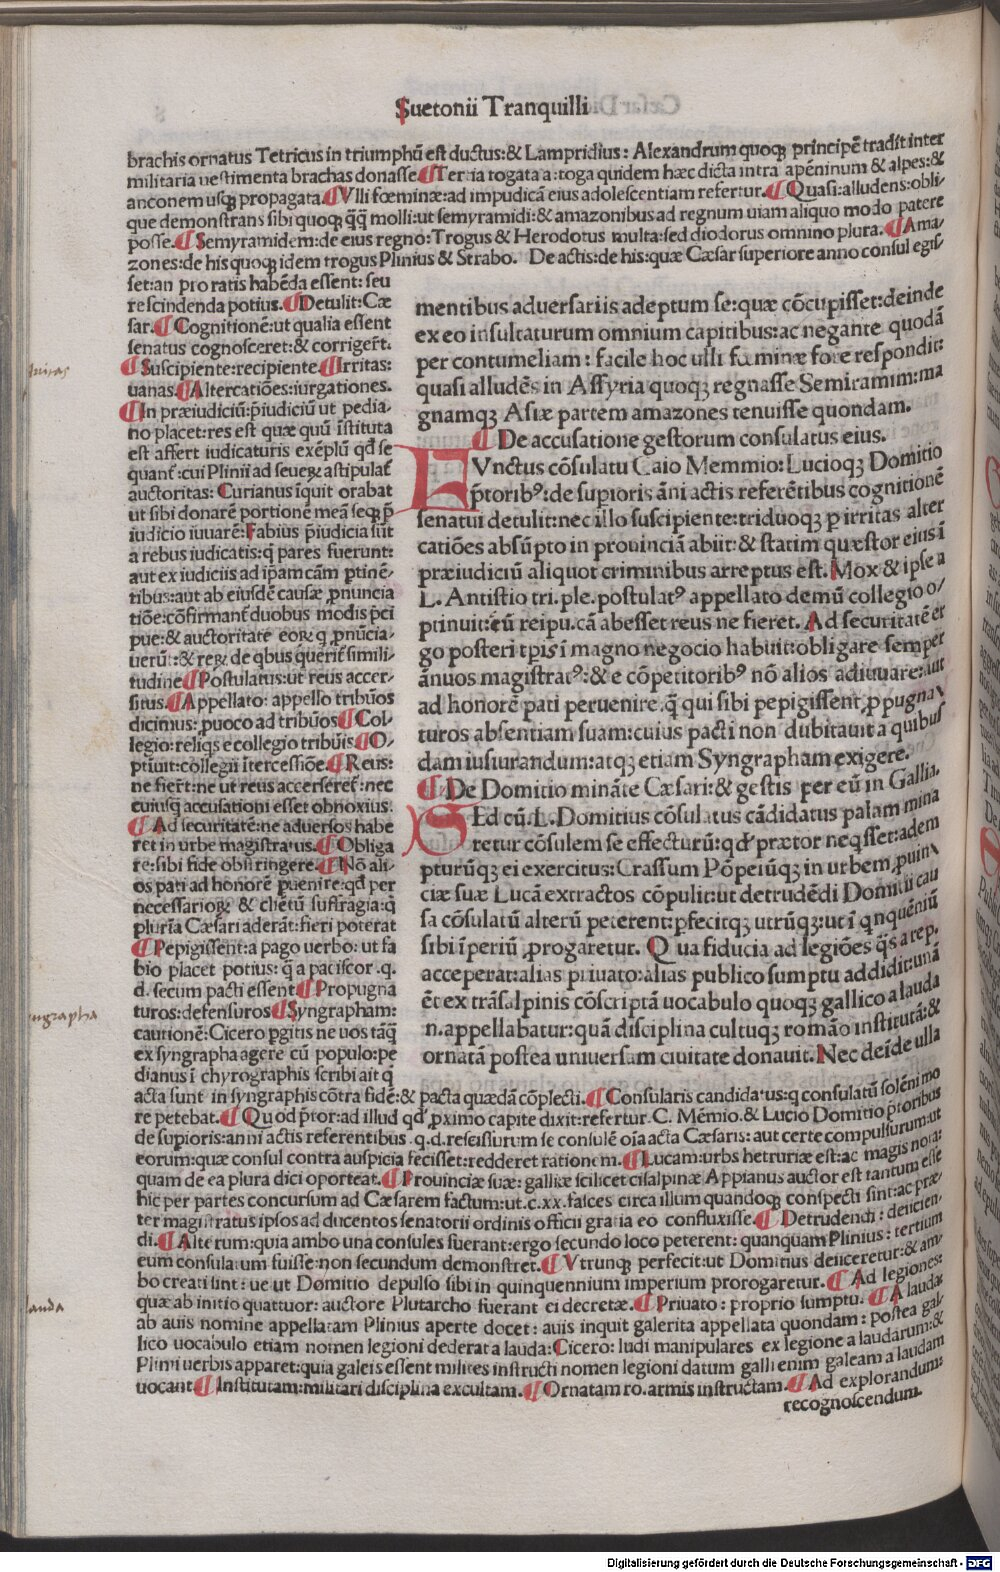 Suetonii Tranquilli
brachis ornatus Tetricus in triumphū est ductus:& Lampridius: Alexandrum quoqꝫ principē tradit inter
militaria uestimenta brachas donasse ¶ Tertia togata a:toga quidem hæc dicta intra apēninum & alpes:&
anconem usqꝫ propagata ¶ Vlli fœminæ:ad impudicā eius adolescentiam refertur. ¶ Quasi:alludens:obli-
que demonstrans sibi quoqꝫ q̄q̄ molli:ut semyramidi:& amazonibus ad regnum uiam aliquo modo patere
posse. ¶ Semyramidem:de eius regno:Trogus & Herodotus multa:sed diodorus omnino plura. ¶ Ama-
zones:de his quoqꝫ idem trogus Plinius & Strabo. De actis:de his:quæ Cæsar superiore anno consul egis-
set:an pro ratis habēda essent: seu
rescindenda potius. ¶ Detulit: Cæ
sar. ¶ Cognitionē:ut qualia essent
senatus cognosceret:& corrigeret̄.
¶ Suscipiente:recipiente. ¶ Irritas:
uanas. ¶ Altercatiōes:iurgationes.
¶ In præiudiciū:p̄iudiciū ut pedia-
no placet:res est quæ quū īstituta
est affert iudicaturis exēplū qd̄ se
quant̄:cui Plinii ad seueꝝ astipulat̄
auctoritas: Curianus īquit orabat
ut sibi donarē portionē meā seqꝫ p̄
iudicio iuuarē: Fabius p̄iudicia sūt
a rebus iudicatis:q̄ pares fuerunt:
aut ex iudiciis ad ip̄am cām ptinē-
tibus:aut ab eiusdē causæ ꝓnuncia
tiōe:cōfirmant̄ duobus modis p̄ci
pue:& auctoritate eoꝝ q̄ ꝓnūcia-
uerū:& reꝝ de qbus querit̄ simili-
tudine ¶ Postulatus:ut reus accer-
situs. ¶ Appellato: appello tribūos
dicimus:ꝓuoco ad tribūos ¶ Col-
legio:reliqs e collegio tribūis ¶ O-
ptīuit:collegii ītercessiōe. ¶ Reus:
ne fieret̄:ne ut reus accerseret̄:nec
cuiusq̄ accusationi esset obnoxius.
¶ Ad securitatē:ne aduersos habe
ret in urbe magistratus. ¶ Obliga
re:sibi fide obstringere. ¶ Nō ali-
os pati ad honorē ꝑuenire:qd̄ per
necessarioꝝ & cliētū suffragia:q̄
plurīa Cæsari aderāt:fieri poterat
¶ Pepigissent:a pago uerbo: ut fa
bio placet potius: q̄ a paciscor .q.
d. secum pacti essent ¶ Propugna
turos:defensuros ¶ Syngrapham:
cautionē:Cicero ꝑgitis ne uos tāq̄
ex syngrapha agere cū populo:pe
dianus ī chyrographis scribi ait q̄
mentibus aduersariis adeptum se:quæ cōcupisset:deinde
ex eo insultaturum omnium capitibus:ac negante quodā
per contumeliam: facile hoc ulli fœminæ fore respondit:
quasi alludēs in Assyria quoqꝫ regnasse Semiramim:ma
gnamqꝫ Asiæ partem amazones tenuisse quondam.
¶ De accusatione gestorum consulatus eius.
FVnctus cōsulatu Caio Memmio: Lucioqꝫ Domitio
p̄torib⁹:de supioris āni actis referētibus cognitionē
senatui detulit:nec illo suscipiente:triduoqꝫ p irritas alter
catiōes absūpto in prouinciā abiit:& statim quæstor eius ī
præiudiciū aliquot criminibus arreptus est. Mox & ipse a
L. Antistio tri. ple. postulat⁹ appellato demū collegio o-
ptinuit:cū reipu.cā abesset reus ne fieret. Ad securitatē er
go posteri tp̄is ī magno negocio habuit:obligare semper
ānuos magistrat⁹:& e cōpetitorib⁹ nō alios adiuuare:aut
ad honorē pati peruenire.q̄ qui sibi pepigissent ꝓpugna
turos absentiam suam:cuius pacti non dubitauit a quibus
dam iusiurandum:atqꝫ etiam Syngrapham exigere.
¶ De Domitio mināte Cæsari:& gestis per eū in Gallia.
SEd cū.L.Domitius cōsulatus cādidatus palam mina
retur cōsulem se effecturū:qd̄ prætor neqsset:adem
pturūqꝫ ei exercitus:Crassum Pōpeiūqꝫ in urbem ꝓuin
ciæ suæ Lucā extractos cōpulit:ut detrudēdi Domitii cau
sa cōsulatū alterū peterent:pfecitqꝫ utrūqꝫ:ut ī qnquēniū
sibi īperiū ꝓrogaretur. Qua fiducia ad legiōes q̄s a rep.
acceperat:alias priuato:alias publico sumptu addidit:unā
ēt ex trāsalpinis cōscriptā uocabulo quoqꝫ gallico alauda
n.appellabatur:quā disciplina cultuqꝫ romāo institutā:&
ornatā postea uniuersam ciuitate donauit. Nec deīde ulla
acta sunt in syngraphis cōtra fidē:& pacta quædā cōplecti. ¶ Consularis candidatus:q consulatū solēnimo
re petebat. ¶ Quod p̄tor:ad illud qd̄ ꝓximo capite dixit:refertur. C. Mēmio.& Lucio Domitio p̄toribus
de supioris:anni actis referentibus .q.d.rescissurum se consulē oīa acta Cæsaris: aut certe compulsurum:ut
eorum:quæ consul contra auspicia fecisset:redderet rationem. ¶ Lucam:urbs hetruriæ est:ac magis nota:
quam de ea plura dici oporteat. ¶ Prouinciæ suæ: galliæ scilicet cisalpinæ Appianus auctor est tantum esse
hic per partes concursum ad Cæsarem factum:ut.c.xx.fasces circa illum quandoqꝫ conspecti sint:ac præ-
ter magistratus ipsos ad ducentos senatorii ordinis officii gratia eo confluxisse. ¶ Detrudendi: deiicien-
di. ¶ Alterum:quia ambo una consules fuerant:ergo secundo loco peterent: quanquam Plinius: tertium
eum consulatum fuisse:non secundum demonstret. ¶ Vtrunqꝫ perfecit:ut Domitius deiiceretur:& am-
bo creati sint: ue ut Domitio depulso sibi in quinquennium imperium prorogaretur. ¶ Ad legiones:
quæ ab initio quattuor: auctore Plutarcho fuerant ei decretæ. ¶ Priuato: proprio sumptu. ¶ A lauda:
ab auis nomine appellatam Plinius aperte docet: auis inquit galerita appellata quondam: postea gal-
lico uocabulo etiam nomen legioni dederat a lauda: Cicero: ludi manipulares ex legione a laudarum:&
Plinii uerbis apparet:quia galeis essent milites instructi nomen legioni datum galli enim galeam a laudam
uocant ¶ Institutam:militari disciplina excultam. ¶ Ornatam ro.armis instructam. ¶ Ad explorandum:
recognoscendum.
ngrapha
anda
Digitalisierung gefördert durch die Deutsche Forschungsgemeinschaft - DFG